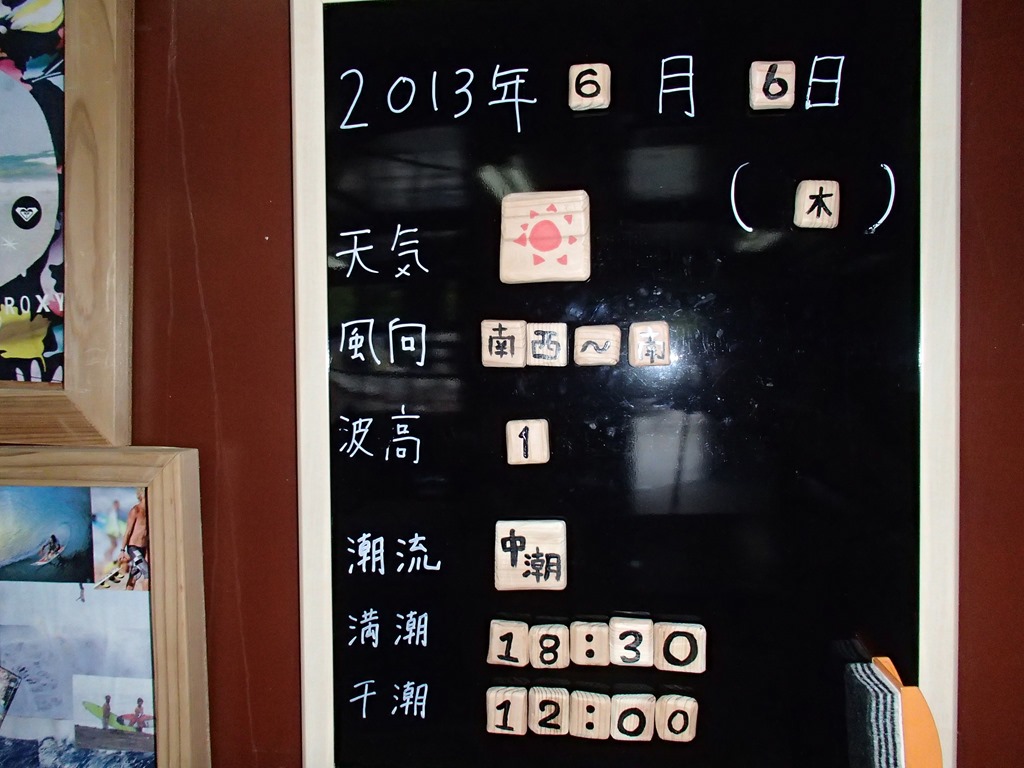 2013年 6 月 6日
(木)
天気
風向 南西～南
波高 1
潮流 中潮
満潮 18:30
干潮 12:00
ROXY